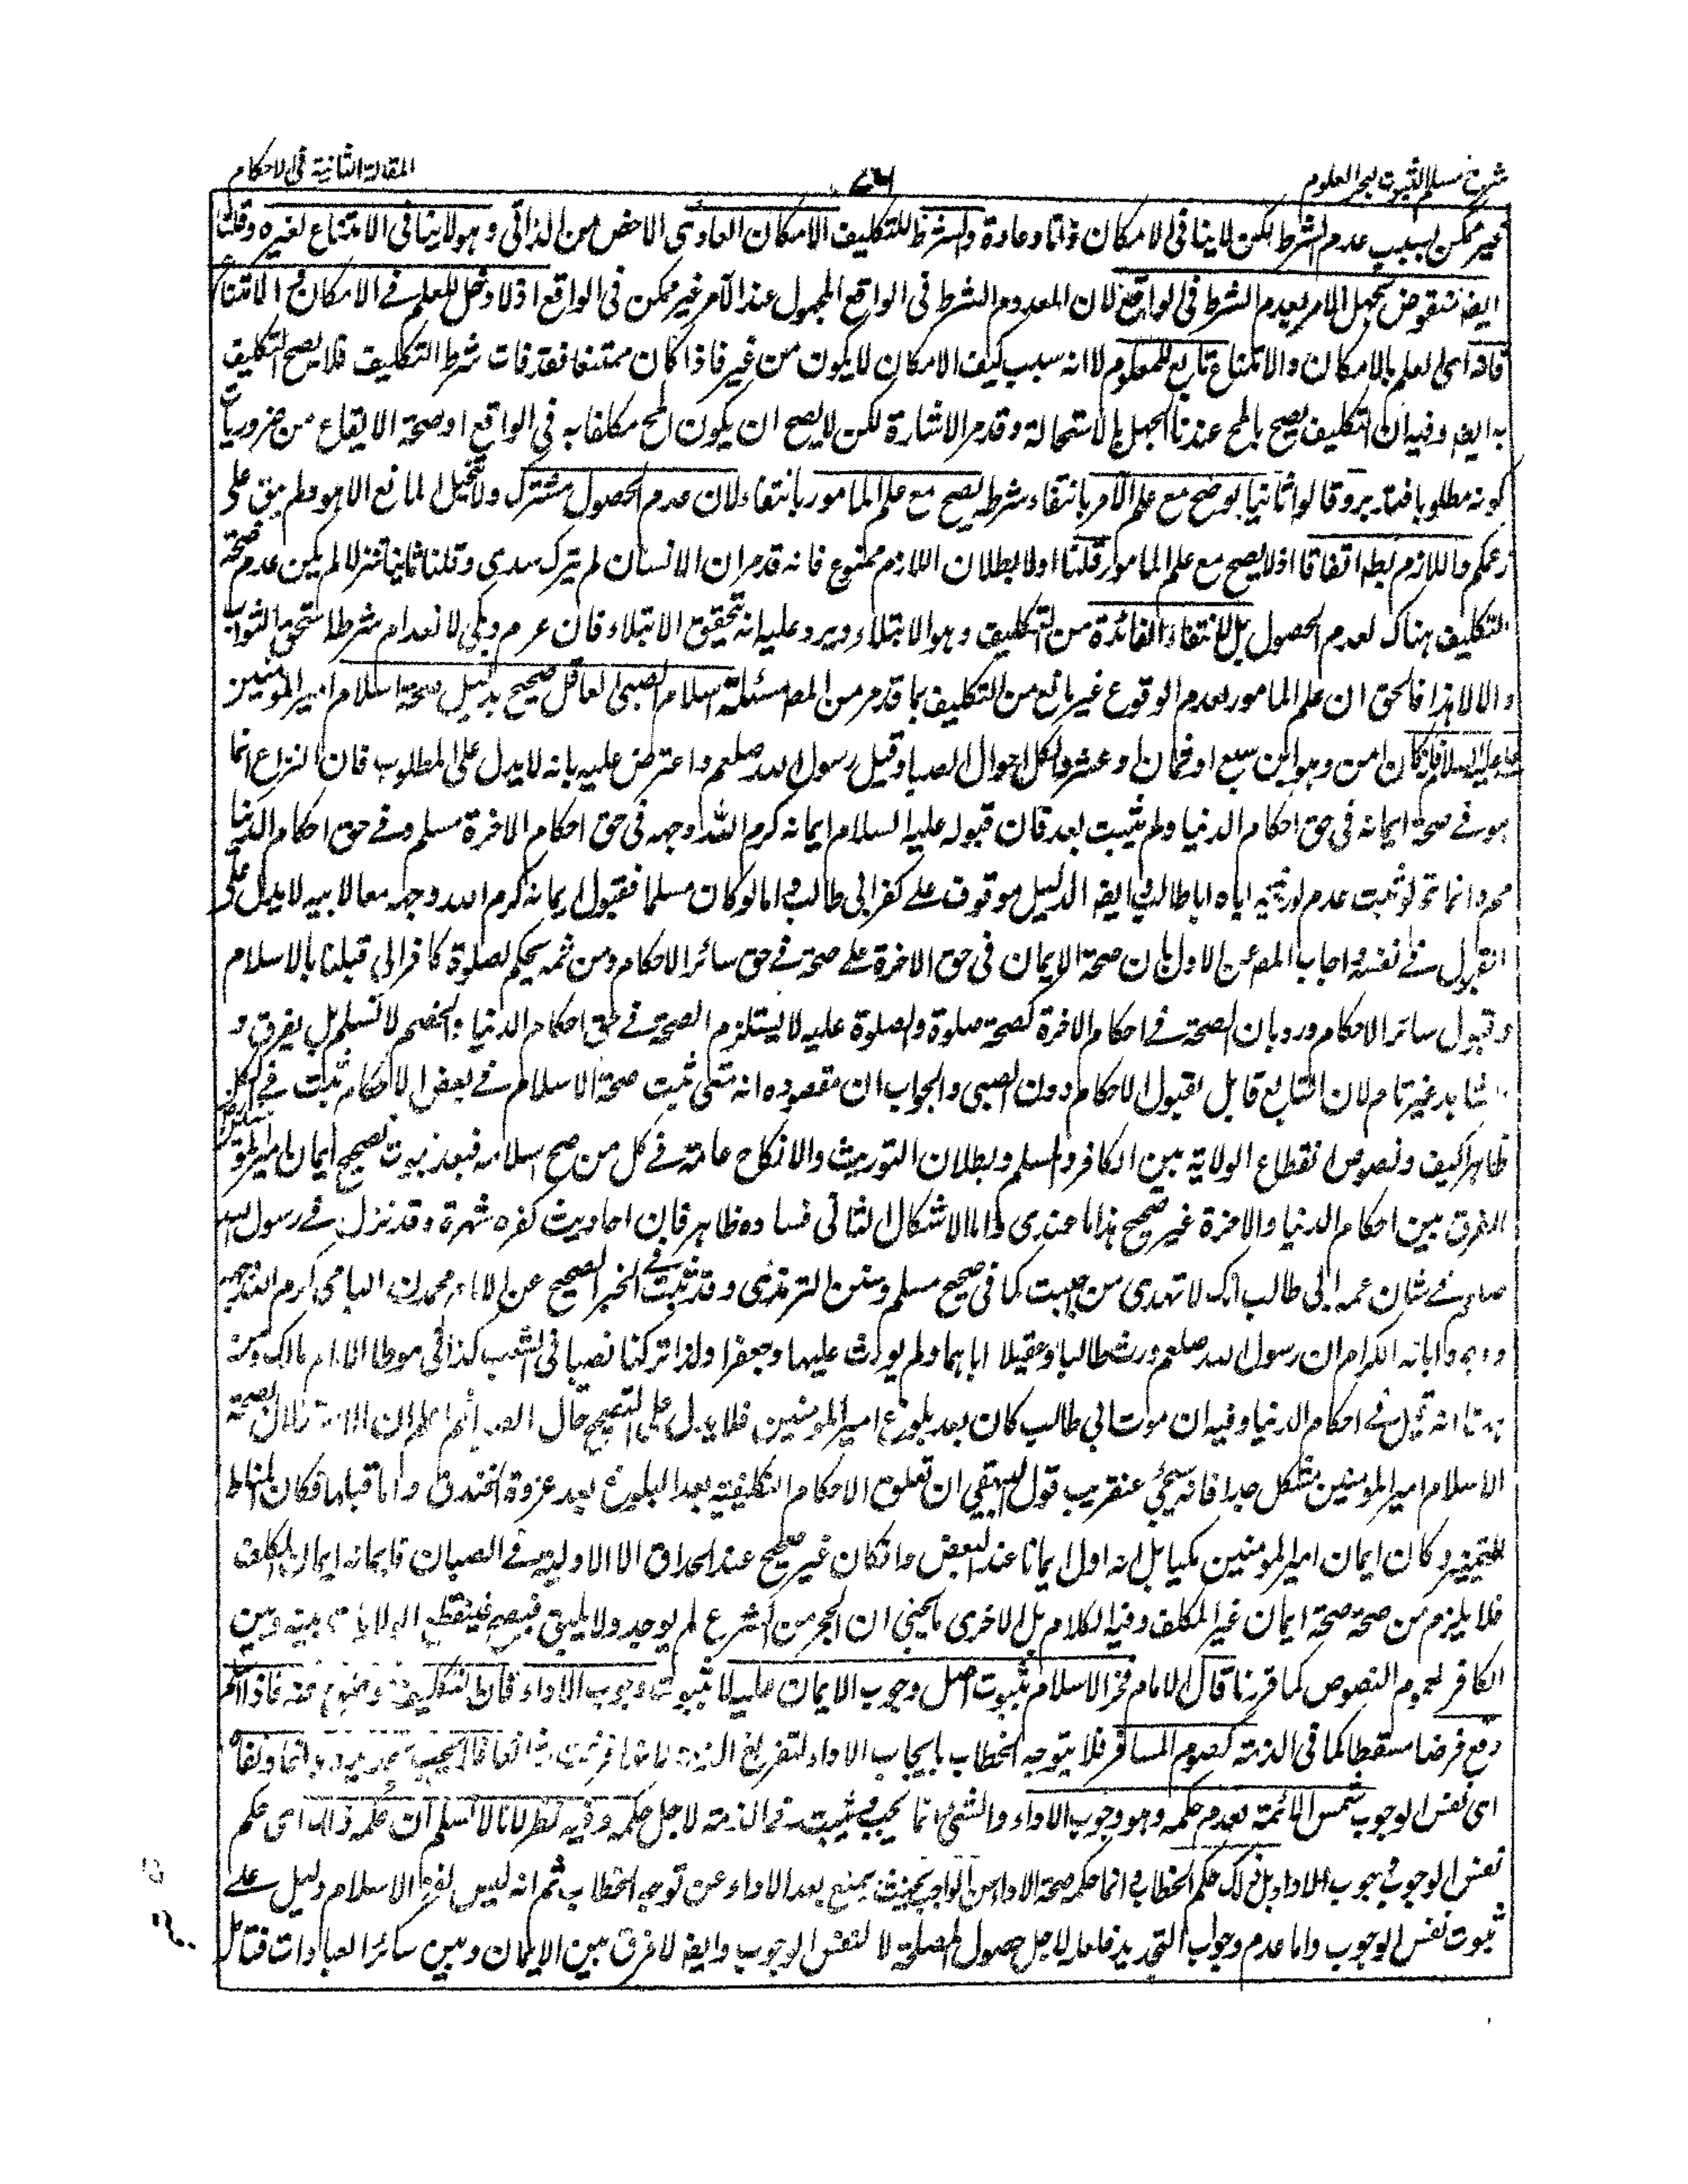 شرح مسلم الثبوت لبحر العلوم
٧٦
المقالة الثانية في الاحكام
غير ممكن بسبب عدم الشرط لكن لا ينافى الامكان ذاتا وعادة والشرط للتكليف الامكان العادى الاخص من الذاتى وهو لا ينافى الامتناع لغيره وقلنا
ايضا منقوض بجهل الآمر بعدم الشرط فى الواقع لان المعدوم الشرط فى الواقع المجهول عند الآمر غير ممكن فى الواقع اذ لا دخل للعلم فے الامكان و الامتناع
فانه اى العلم بالامكان والامتناع تابع للمعلوم لا انه سبب كيف الامكان لا يكون من غير فاذا كان ممتنعا فقد فات شرط التكليف فلا يصح التكليف
به ايضا وفيه ان التكليف يصح بالمح عندنا الجهل بالاستحالة وقد مر الاشارة لكن لا يصح ان يكون المح مكلفا به فى الواقع او صحة الايقاع من ضروريات
كونه مطلوبا فتدبر وقالوا ثانيا لو صح مع علم الآمر بانتفاء شرطه يصح مع علم المامور بانتفاءه لان عدم الحصول مشترك ولا تخيل المانع الا هو ولم يبق على
زعمكم واللازم بط اتفاقا اذ لا يصح مع علم المامور قلنا اولا بطلان اللازم ممنوع فانه قد مر ان الانسان لم يترك سدى وقلنا ثانيا تنزلا لم يكن عدم صحة
التكليف هناك لعدم الحصول بل لانتفاء الفائدة من التكليف وهو الابتلاء ويرد عليه انه تحقيق الابتلاء فان عزم وبكى لانعدام شرطه استحق الثواب
والا لا هذا فالحق ان علم المامور بعدم الوقوع غير مانع من التكليف بما قد مر من المص مسئلة اسلام الصبى العاقل صحيح بدليل صحة اسلام امير المؤمنين
على عليه السلام فانه كان امن وهو ابن سبع او ثمان او عشر ولكل احوال الصبا وقيل رسول الله صلعم واعترض عليه بانه لا يدل على المطلوب فان النزاع انما
هو فے صحة ايمانه فى حق احكام الدنيا ولم يثبت بعد فان قبوله عليه السلام ايمانه كرم الله وجهه فى حق احكام الاخرة مسلم وفے حق احكام الدنيا
مم وانما تم لو ثبت عدم توريثه اياه ابا طالب وايضا الدليل موقوف على كفر ابى طالب واما لو كان مسلما فقبول ايمانه كرم الله وجهه معا لابيه لا يدل على
القبول فے نفسه واجاب المص عن الاول بان صحة الايمان فى حق الاخرة على صحة فے حق سائر الاحكام ومن ثمه يحكم لصلوة كافر الى قبلتنا بالاسلام
وقبول سائر الاحكام ورد بان الصحة فے احكام الاخرة كصحة صلوة والصلوة عليه لا يستلزم الصحة فے حق احكام الدنيا والخصم لا تسلم بل يفرق و
شاهد غير تام لان التابع قابل لقبول الاحكام دون الصبى والجواب ان مقصوده انه متى ثبت صحة الاسلام فے بعض الاحكام ثبت فے الكل
ظاهرا كيف ونصوص انقطاع الولاية بين الكافر والمسلم وبطلان التوريث والانكاح عامة فے كل من صح اسلامه فبعد ثبوت تصحيح ايمان امير المؤمنين
الفرق بين احكام الدنيا والاخرة غير صحيح هذا ما عندى واما الاشكال الثانى فساده ظاهر فان احاديث كفره شهرة وقد نزل فے رسول الله
صلعم فے شان عمه ابى طالب انك لا تهدى من احببت كما فى صحيح مسلم وسنن الترمذى وقد ثبت فے الخبر الصحيح عن الامام محمد بن الباقى كرم الله وجهه
ووجوه ابائه الكرام ان رسول الله صلعم ورث طالبا وعقيلا اباهما ولم يورث عليها وجعفرا ولذا تركنا نصيبا فى الشعب كذا فى موطا الامام مالك ومن
هذا انه قبل فے احكام الدنيا وفيه ان موت ابى طالب كان بعد بلوغ امير المؤمنين فلا يدل على التصحيح حال الصبا ثم اعلم ان الاستدلال بصحة
الاسلام امير المؤمنين مشكل جدا فانه سيجئ عنقريب قول البيهقى ان تعلق الاحكام التكليفية بعد البلوغ بعد غزوة الخندق واما قبلها فكان المناط
التمييز وكان ايمان امير المؤمنين بمكة بل انه اول ايمانا عند البعض وان كان غير صحيح عند الحذاق الا الاولية فے الصبيان فايمانه ايمان المكلف
فلا يلزم من صحة صحة ايمان غير المكلف وفيه الكلام بل الاخرى ما يجئ ان الحجر من الشرع لم يوجد ولا يليق فيصح فينقطع الولايات بينه وبين
الكافر لعموم النصوص كما قررنا قال الامام فخر الاسلام بثبوت اصل وجوب الايمان عليه لا بثبوت وجوب الاداء فان التكليف وضوع عنه فاذا اسلم
وقع فرضا مسقطا كما فى الذمة كصوم المسافر فلا يتوجه الخطاب بايجاب الاداء لتفريغ الذمة
اى نفس الوجوب شمس الائمة لعدم حكمه وهو وجوب الاداء والشئ انما يجب ويثبت فى الذمة لاجل حكمه وفيه نظر لانا لا نسلم ان حكمه ذاك اى حكم
نفس الوجوب وجوب الاداء بل ذاك حكم الخطاب انما حكمه صحة الاداء عن الواجب بحيث يمنع بعد الاداء عن توجه الخطاب ثم انه ليس لفخر الاسلام دليل على
ثبوت نفس الوجوب واما عدم وجوب التجديد فلعله لاجل حصول المصلحة لا لنفس الوجوب وايضا لا فرق بين الايمان وبين سائر العبادات فتامل